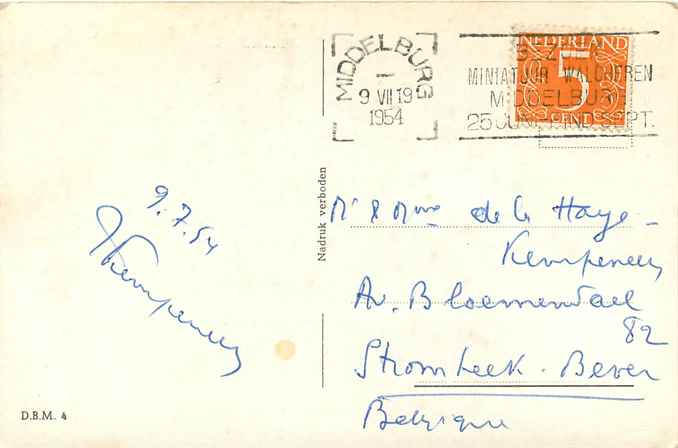 MIDDELBURG
9 VII 19
1954
NEDERLAND
5
CENT
BEZOEKT
MINIATUUR WALCHEREN
MIDDELBURG
25 JUNI EIND SEPT.
9.7.54
Kempeneers
Nadruk verboden
Mr & Mme de la Haye-
Kempeneers
Av. Bloemendael
82
Strombeek-Bever
Belgique
D.B.M. 4